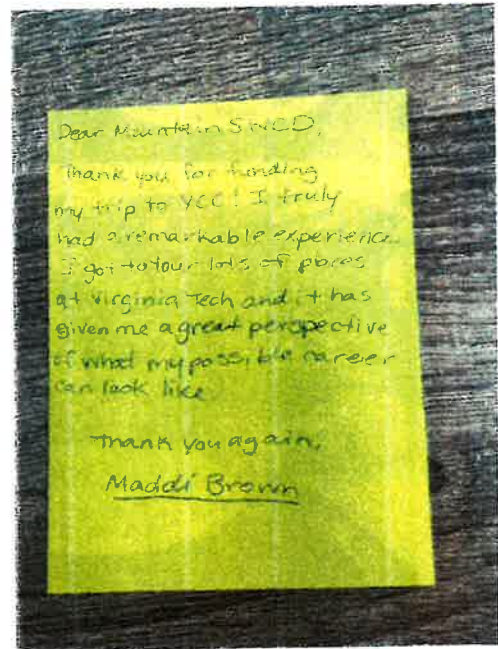 Dear Mountain SWCD,
Thank you for funding
my trip to YCC! I truly
had a remarkable experience.
I got to tour lots of places
at Virginia Tech and it has
given me a great perspective
of what my possible career
can look like
Thank you again,
Maddi Brown